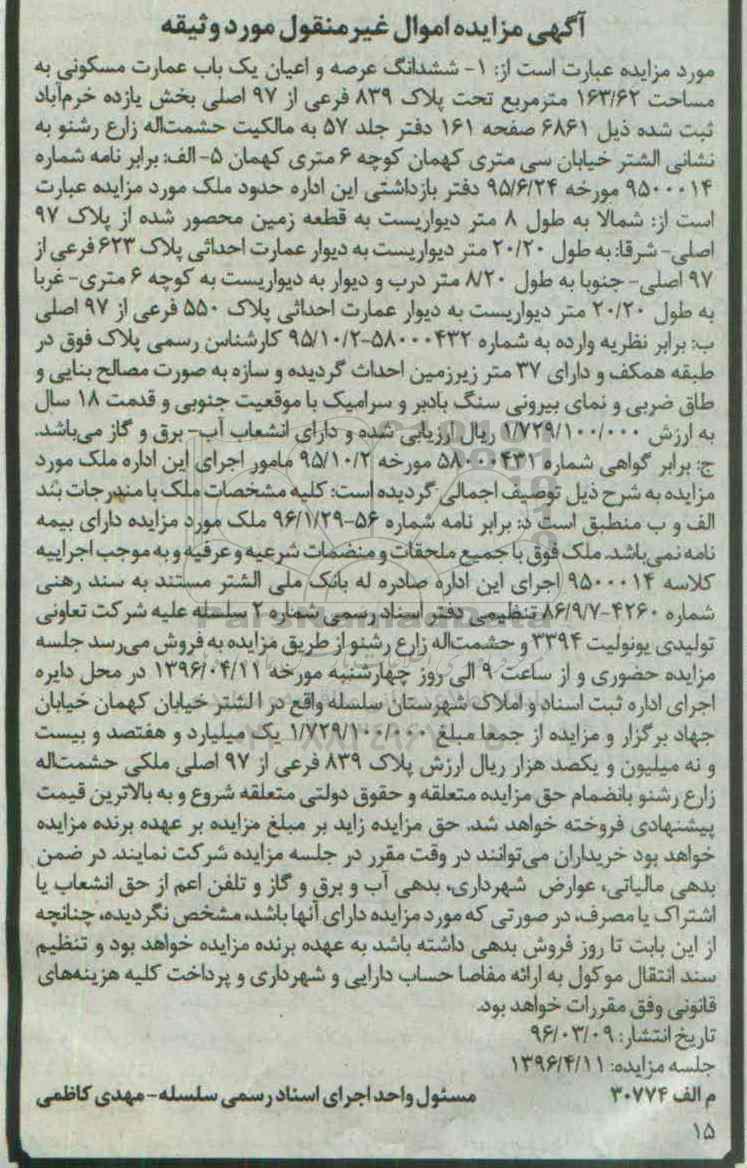 آگهی مزایده اموال غیرمنقول مورد وثیقه
مورد مزایده عبارت است از: ۱- ششدانگ عرصه و اعیان یک باب عمارت مسکونی به
مساحت ۱۶۳/۶۲ مترمربع تحت پلاک ۸۳۹ فرعی از ۹۷ اصلی بخش یازده خرم‌آباد
ثبت شده ذیل ۶۸۶۱ صفحه ۱۶۱ دفتر جلد ۵۷ به مالکیت حشمت‌اله زارع رشنو به
نشانی الشتر خیابان سی متری کهمان کوچه ۶ متری کهمان ۵- الف: برابر نامه شماره
۹۵۰۰۰۱۴ مورخه ۹۵/۶/۲۴ دفتر بازداشتی این اداره حدود ملک مورد مزایده عبارت
است از: شمالا به طول ۸ متر دیواریست به قطعه زمین محصور شده از پلاک ۹۷
اصلی- شرقا: به طول ۲۰/۲۰ متر دیواریست به دیوار عمارت احداثی پلاک ۶۲۳ فرعی از
۹۷ اصلی- جنوبا به طول ۸/۲۰ متر درب و دیوار به دیواریست به کوچه ۶ متری- غربا
به طول ۲۰/۲۰ متر دیواریست به دیوار عمارت احداثی پلاک ۵۵۰ فرعی از ۹۷ اصلی
ب: برابر نظریه وارده به شماره ۵۸۰۰۰۴۳۲-۹۵/۱۰/۲ کارشناس رسمی پلاک فوق در
طبقه همکف و دارای ۳۷ متر زیرزمین احداث گردیده و سازه به صورت مصالح بنایی و
طاق ضربی و نمای بیرونی سنگ بادبر و سرامیک با موقعیت جنوبی و قدمت ۱۸ سال
به ارزش ۱/۷۲۹/۱۰۰/۰۰۰ ریال ارزیابی شده و دارای انشعاب آب- برق و گاز می‌باشد.
ج: برابر گواهی شماره ۵۸۰۰۰۴۳۱ مورخه ۹۵/۱۰/۲ مامور اجرای این اداره ملک مورد
مزایده به شرح ذیل توصیف اجمالی گردیده است: کلیه مشخصات ملک با مندرجات بند
الف و ب منطبق است د: برابر نامه شماره ۵۶-۹۶/۱/۲۹ ملک مورد مزایده دارای بیمه
نامه نمی‌باشد. ملک فوق با جمیع ملحقات و منضمات شرعیه و عرفیه و به موجب اجراییه
کلاسه ۹۵۰۰۰۱۴ اجرای این اداره صادره له بانک ملی الشتر مستند به سند رهنی
شماره ۴۲۶۰-۸۶/۹/۷ تنظیمی دفتر اسناد رسمی شماره ۲ سلسله علیه شرکت تعاونی
تولیدی یونولیت ۳۳۹۴ و حشمت‌اله زارع رشنو از طریق مزایده به فروش می‌رسد جلسه
مزایده حضوری و از ساعت ۹ الی روز چهارشنبه مورخه ۱۳۹۶/۰۴/۱۱ در محل دایره
اجرای اداره ثبت اسناد و املاک شهرستان سلسله واقع در الشتر خیابان کهمان خیابان
جهاد برگزار و مزایده از جمعا مبلغ ۱/۷۲۹/۱۰۰/۰۰۰ یک میلیارد و هفتصد و بیست
و نه میلیون و یکصد هزار ریال ارزش پلاک ۸۳۹ فرعی از ۹۷ اصلی ملکی حشمت‌اله
زارع رشنو بانضمام حق مزایده متعلقه و حقوق دولتی متعلقه شروع و به بالاترین قیمت
پیشنهادی فروخته خواهد شد. حق مزایده زاید بر مبلغ مزایده بر عهده برنده مزایده
خواهد بود خریداران می‌توانند در وقت مقرر در جلسه مزایده شرکت نمایند. در ضمن
بدهی مالیاتی، عوارض شهرداری، بدهی آب و برق و گاز و تلفن اعم از حق انشعاب یا
اشتراک یا مصرف، در صورتی که مورد مزایده دارای آنها باشد، مشخص نگردیده، چنانچه
از این بابت تا روز فروش بدهی داشته باشد به عهده برنده مزایده خواهد بود و تنظیم
سند انتقال موکول به ارائه مفاصا حساب دارایی و شهرداری و پرداخت کلیه هزینه‌های
قانونی وفق مقررات خواهد بود.
تاریخ انتشار: ۹۶/۰۳/۰۹
جلسه مزایده: ۱۳۹۶/۴/۱۱
م الف ۳۰۷۷۴ مسئول واحد اجرای اسناد رسمی سلسله- مهدی کاظمی
۱۵